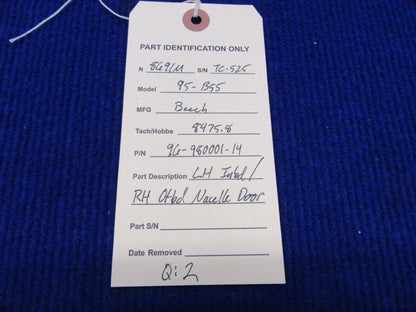 PART IDENTIFICATION ONLY
N 8691M S/N TC-525
Model 95-B55
MFG Beech
Tach/Hobbs 8475.8
P/N 96-980001-14
Part Description LH Inbd/
RH Otbd Nacelle Door
Part S/N
Date Removed
Q:2